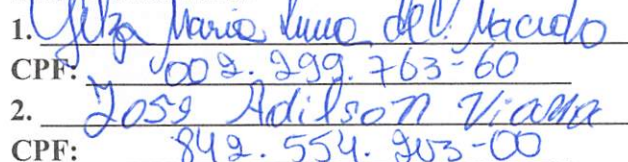 1. Gilza Maria Luna de Macedo
CPF: 002.299.763-60
2. José Adilson Viana
CPF: 842.554.203-00